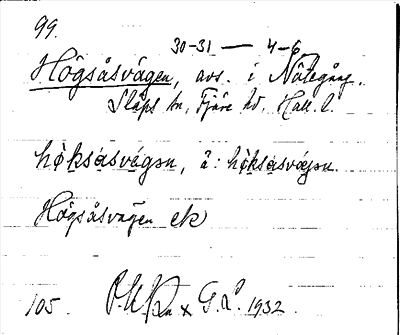 99.
30-31 — 4-6
Högsåsvägen, avs. i Nötegång,
Släps sn, Fjäre hd, Hall. l.
hø̀ksåsvägən, ä: hø̀ksåsvägən
Högsåsvägen ek
105. G. L. 1932.